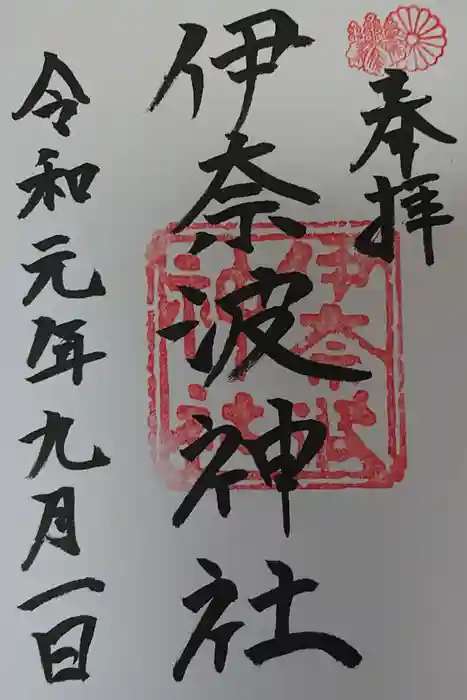 奉拝
伊奈波神社
令和元年九月一日
伊奈波
神社